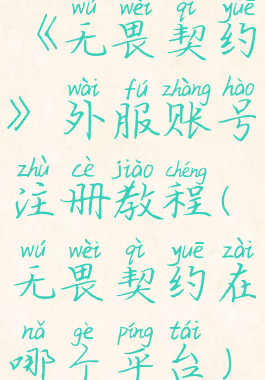 wú wèi qì yuē
《无畏契约
wài fú zhàng hào
》外服账号
zhù cè jiào chéng
注册教程(
wú wèi qì yuē zài
无畏契约在
nǎ gè píng tái
哪个平台)